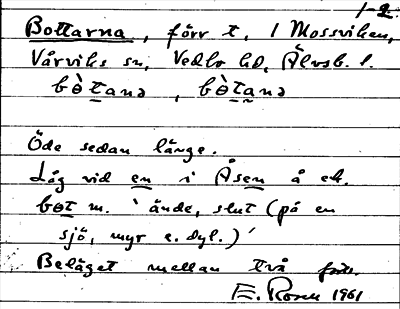 1-2
Bottarna, förr t. 1 Mossviken,
Vårviks sn, Vedbo hd, Älvsb. l.
bòtanə, bòtanə
Öde sedan länge.
Låg vid en i Åsen å ek.
bot m. 'ände, slut (på en
sjö, myr e. dyl.)'
Beläget mellan två
E. Rosen 1961